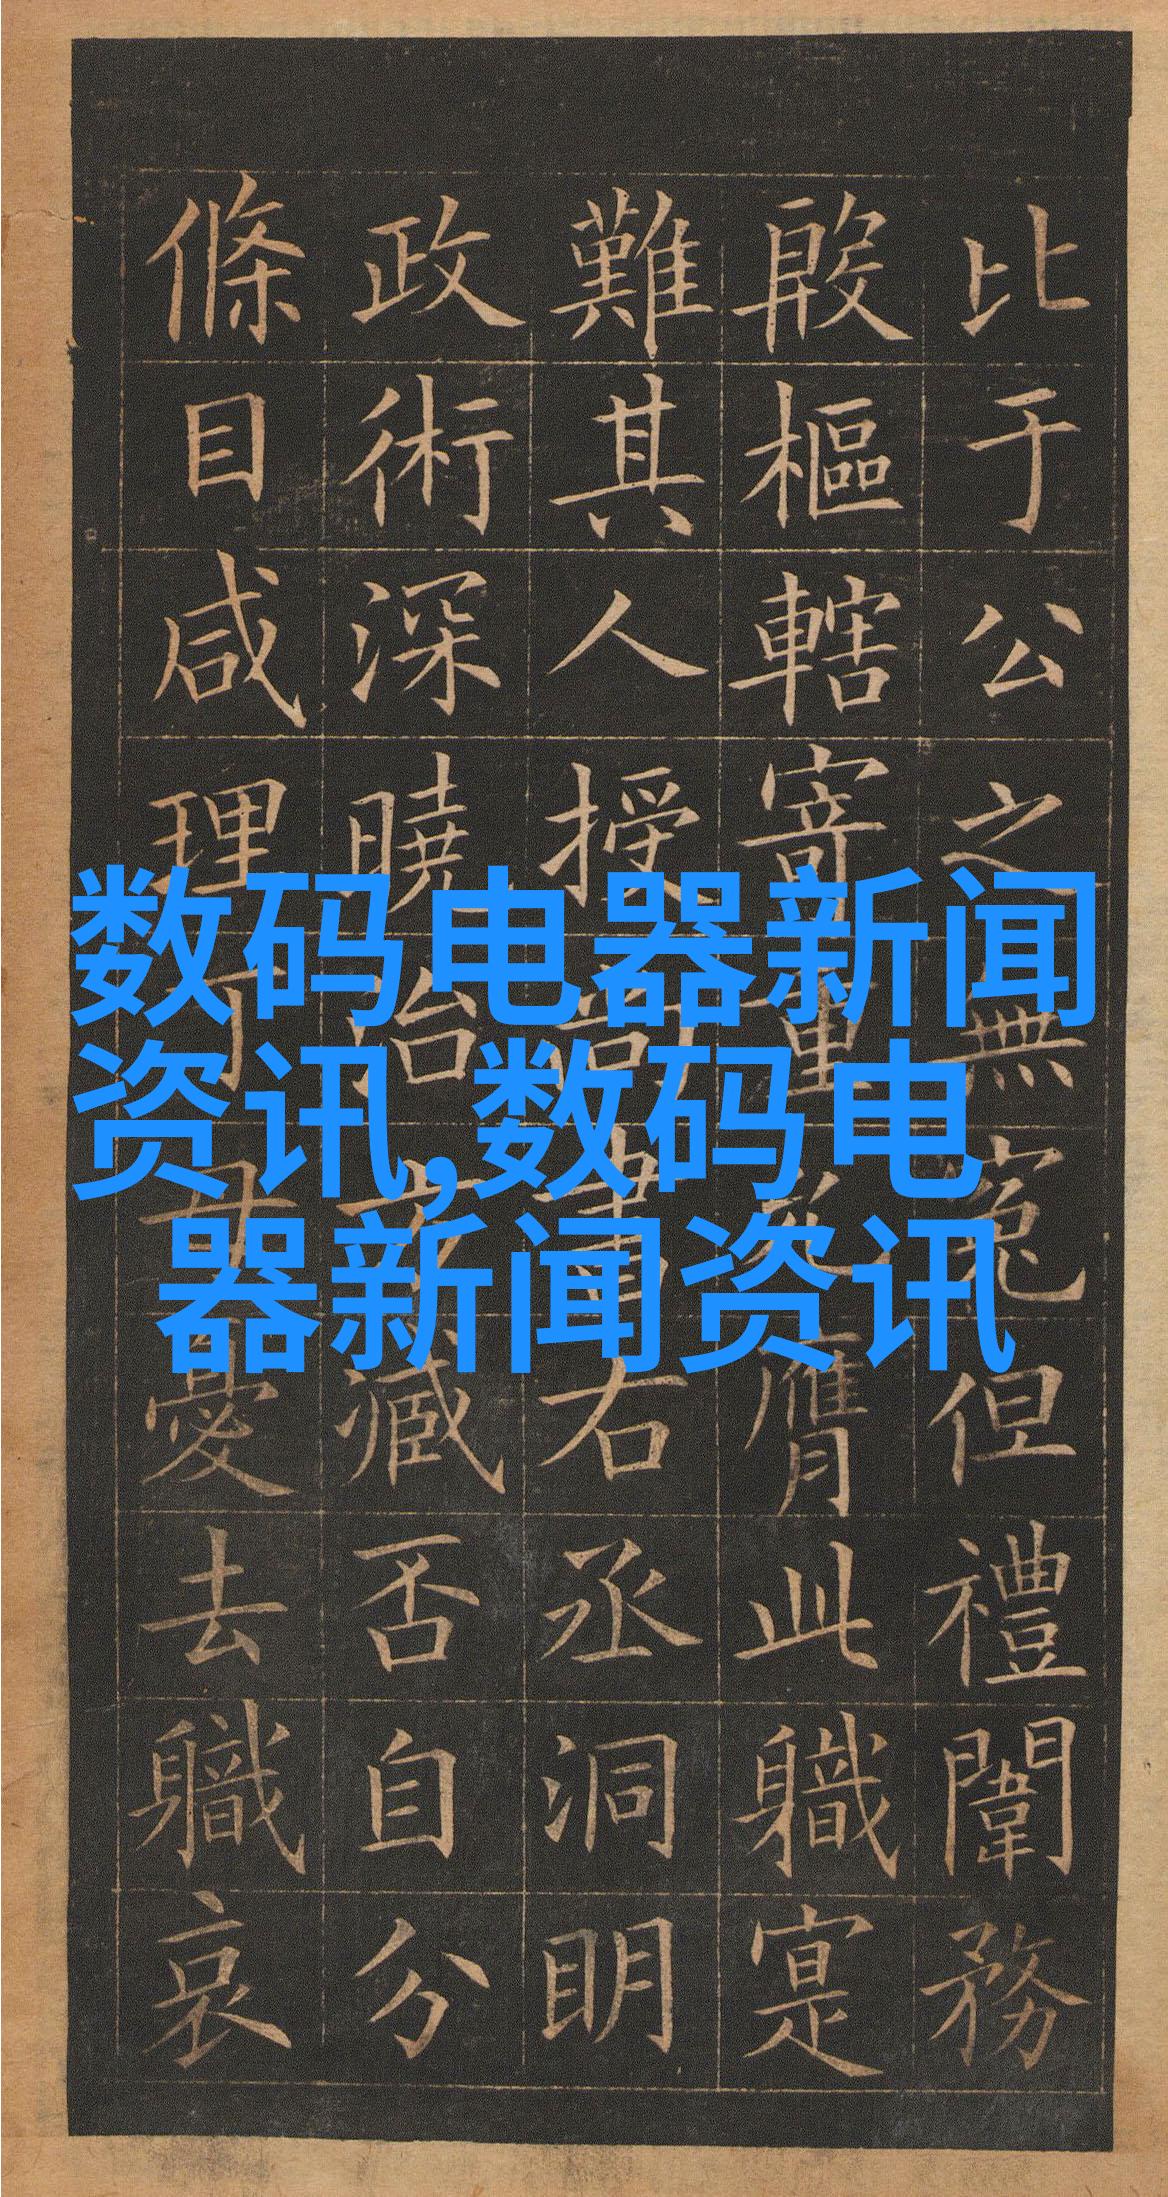 比于公之無冤但禮闈務
殷樞轄寄重膺此職寔
難其人授書右丞洞明
政術深曉治臧否自分
條目咸理憂去職哀
数码电器新闻
资讯,数码电
器新闻资讯